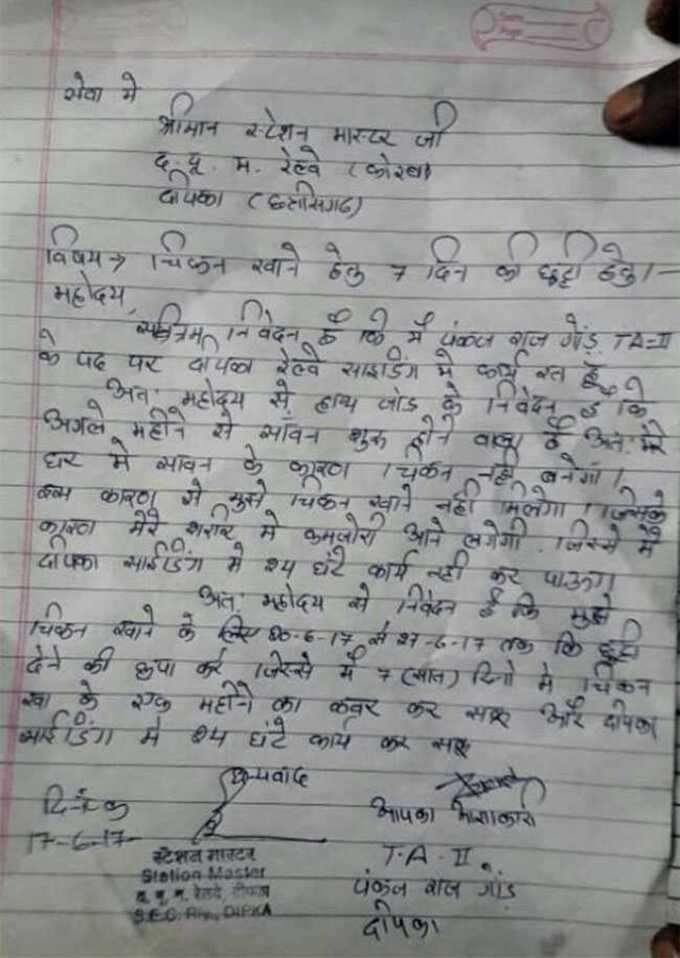 सेवा में
श्रीमान स्टेशन मास्टर जी
द. पू. म. रेल्वे (कोरबा)
दीपका (छत्तीसगढ)
विषय → चिकन खाने हेतु 7 दिन की छुट्टी हेतु।-
महोदय,
निवेदन है कि मैं पंकज राज गोंड़ TA-II
के पद पर दीपका रेल्वे साइडिंग में कार्य रत हूँ
अतः महोदय से हाथ जोड के निवेदन है कि
अगले महीने से साँवन शुरू होने वाला है अतः मेरे
घर में सावन के कारण चिकन नही बनेगा।
इस कारण से मुझे चिकन खाने नही मिलेगा। जिसके
कारण मेरे शरीर में कमजोरी आने लगेगी, जिससे में
दीपका साईडिंग में 24 घंटे कार्य नही कर पाऊंगा
अतः महोदय से निवेदन है कि मुझे
चिकन खाने के लिए 20-6-17 से 27-6-17 तक कि छुट्टी
देने की कृपा करें जिससे में 7 (सात) दिनो में चिकन
खा के एक महीने का कवर कर सकू और दीपका
साईडिंग में 24 घंटे कार्य कर सकू
धन्यवाद
दिनांक
17-6-17
आपका आज्ञाकारी
स्टेशन मास्टर
Station Master
द. पू. म. रेलवे, दीपका
S.E.C. Rly., DIPKA
T.A-II
पंकज राज गोंड
दीपका